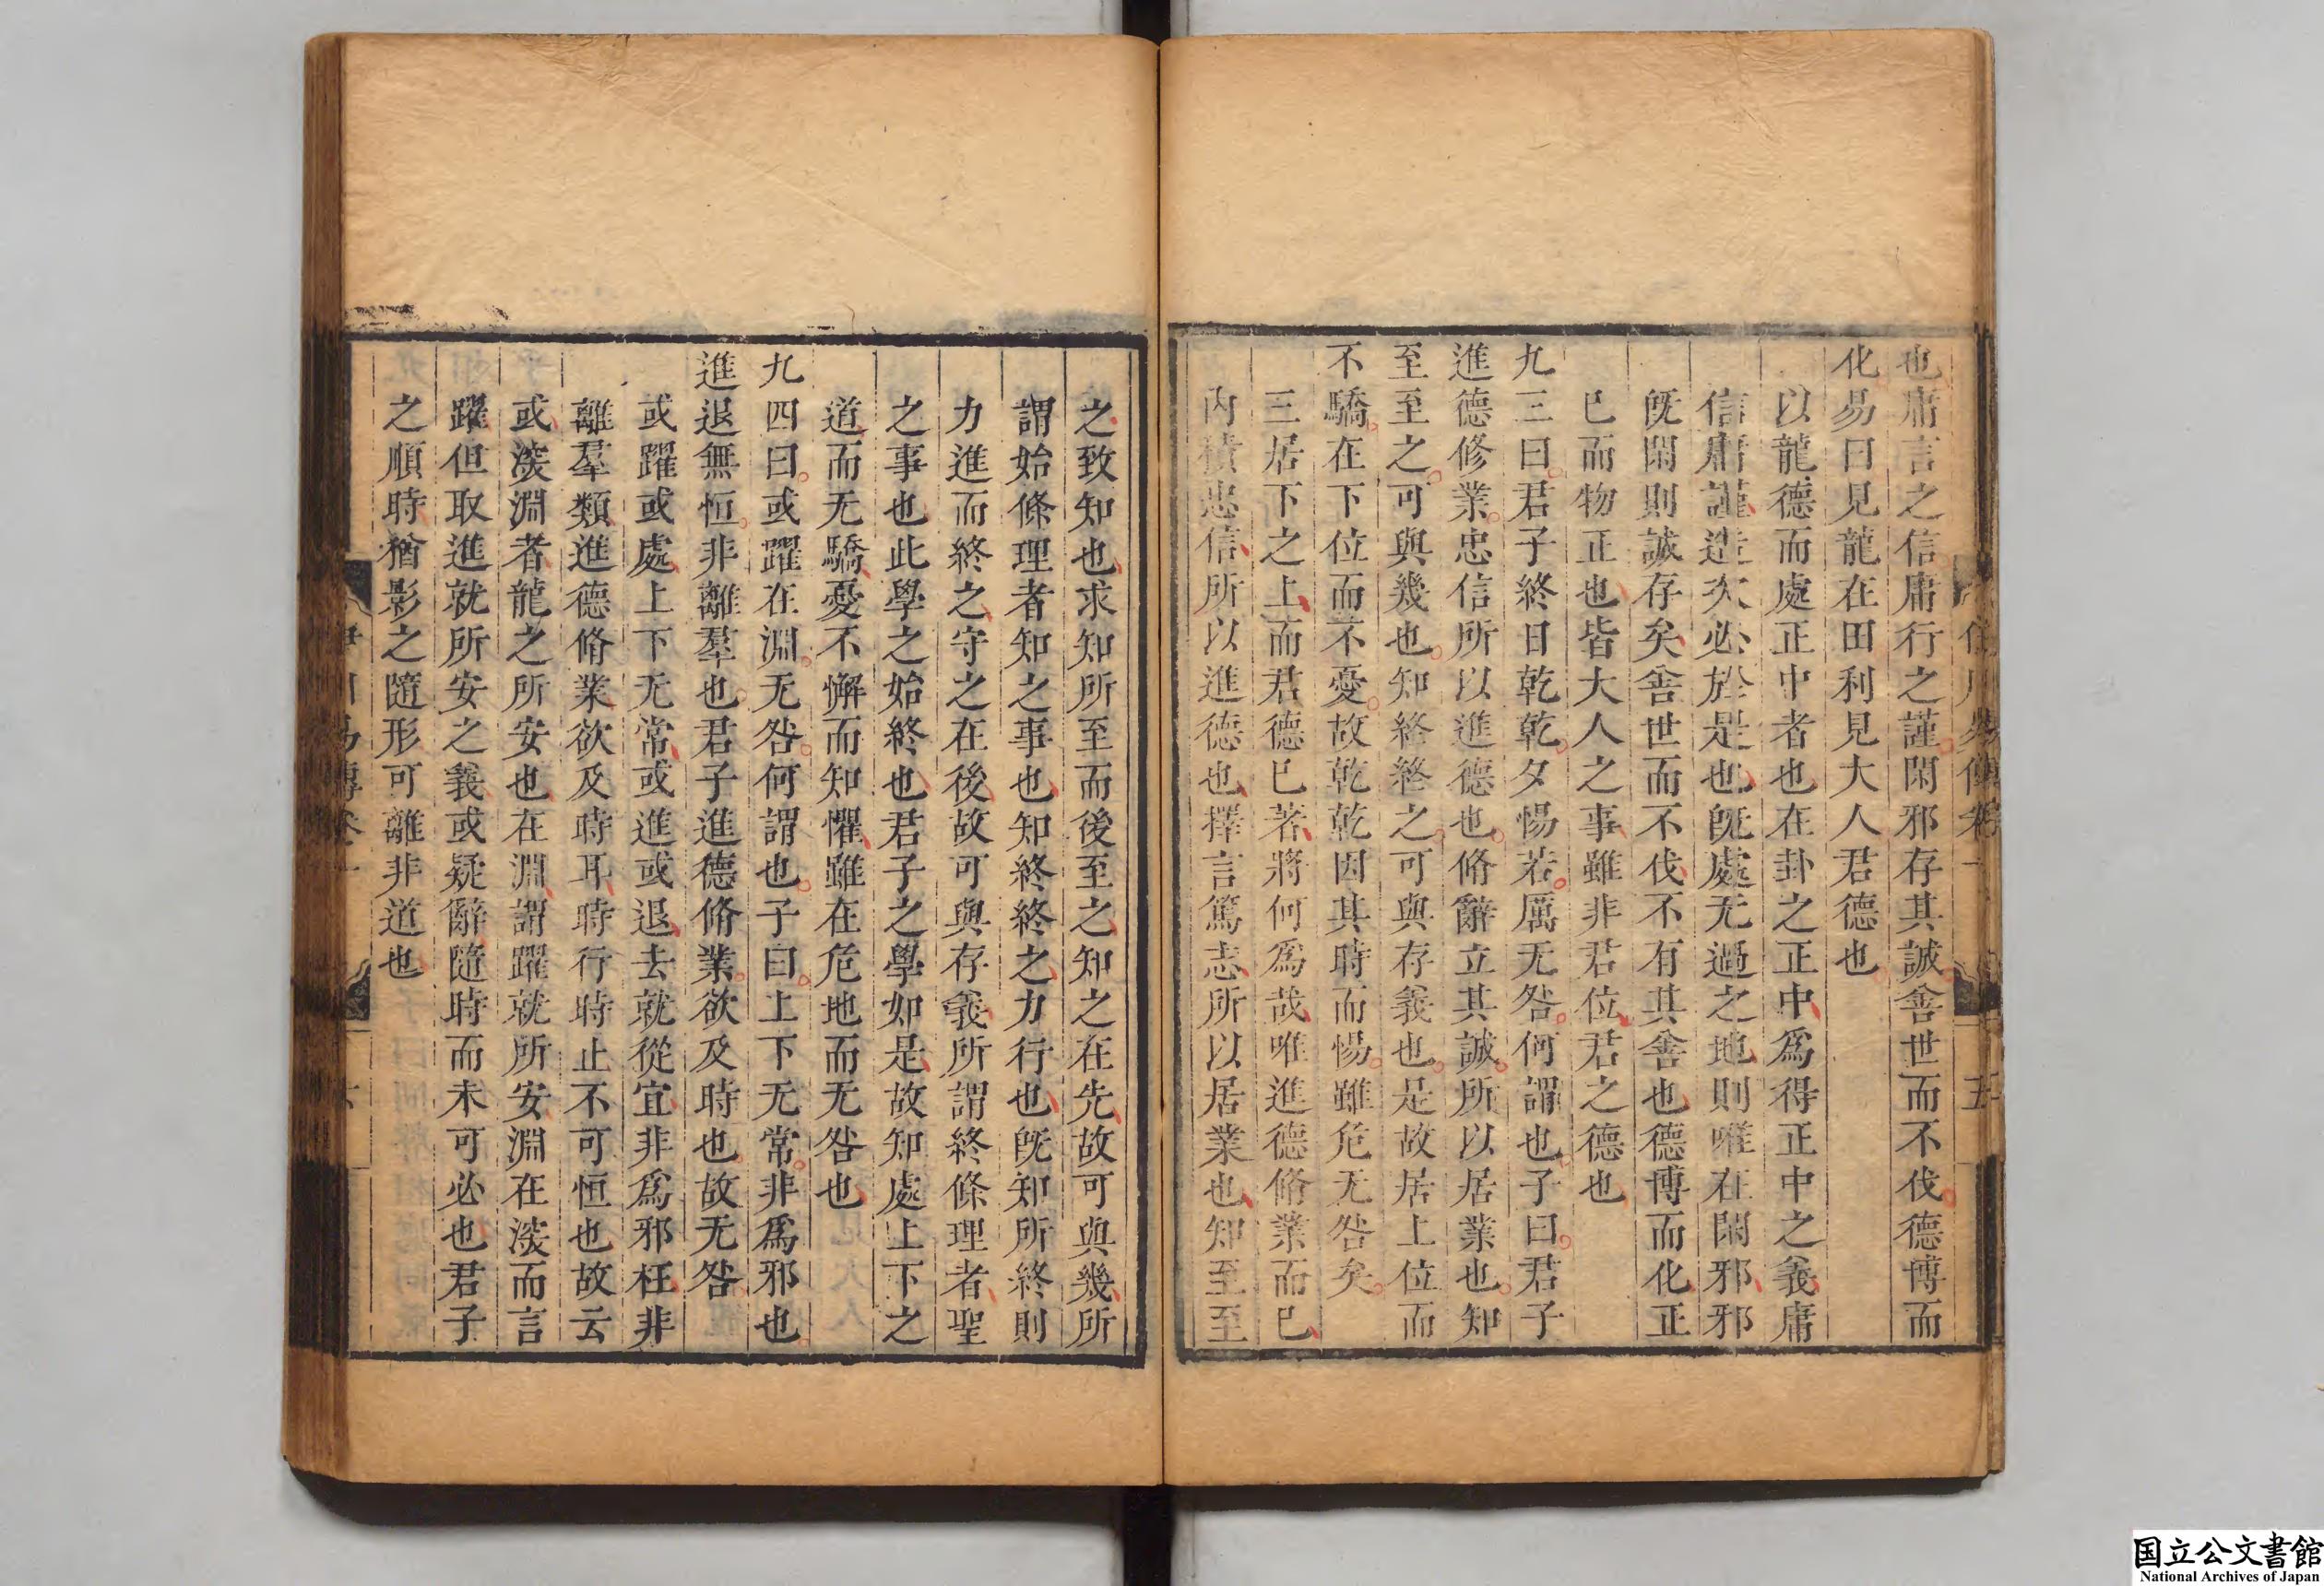 也庸言之信庸行之謹閑邪存其誠善世而不伐德博而
化易曰見龍在田利見大人君德也
以龍德而處正中者也在卦之正中爲得正中之義庸
信庸謹造次必於是也旣處无過之地則唯在閑邪邪
旣閑則誠存矣善世而不伐不有其善也德博而化正
已而物正也皆大人之事雖非君位君之德也
九三曰君子終日乾乾夕惕若厲无咎何謂也子曰君子
進德修業忠信所以進德也脩辭立其誠所以居業也知
至至之可與幾也知終終之可與存義也是故居上位而
不驕在下位而不憂故乾乾因其時而惕雖危无咎矣
三居下之上而君德已著將何爲哉唯進德脩業而已
內積忠信所以進德也擇言篤志所以居業也知至至
之致知也求知所至而後至之知之在先故可與幾所
謂始條理者知之事也知終終之力行也旣知所終則
力進而終之守之在後故可與存義所謂終條理者聖
之事也此學之始終也君子之學如是故知處上下之
道而无驕憂不懈而知懼雖在危地而无咎也
九四曰或躍在淵无咎何謂也子曰上下无常非爲邪也
進退無恒非離羣也君子進德脩業欲及時也故无咎
或躍或處上下无常或進或退去就從宜非爲邪枉非
離羣類進德脩業欲及時耳時行時止不可恒也故云
或淡淵者龍之所安也在淵謂躍就所安淵在淡而言
躍但取進就所安之義或疑辭隨時而未可必也君子
之順時猶影之隨形可離非道也
伊川易傳卷一
五
六
国立公文書館
National Archives of Japan